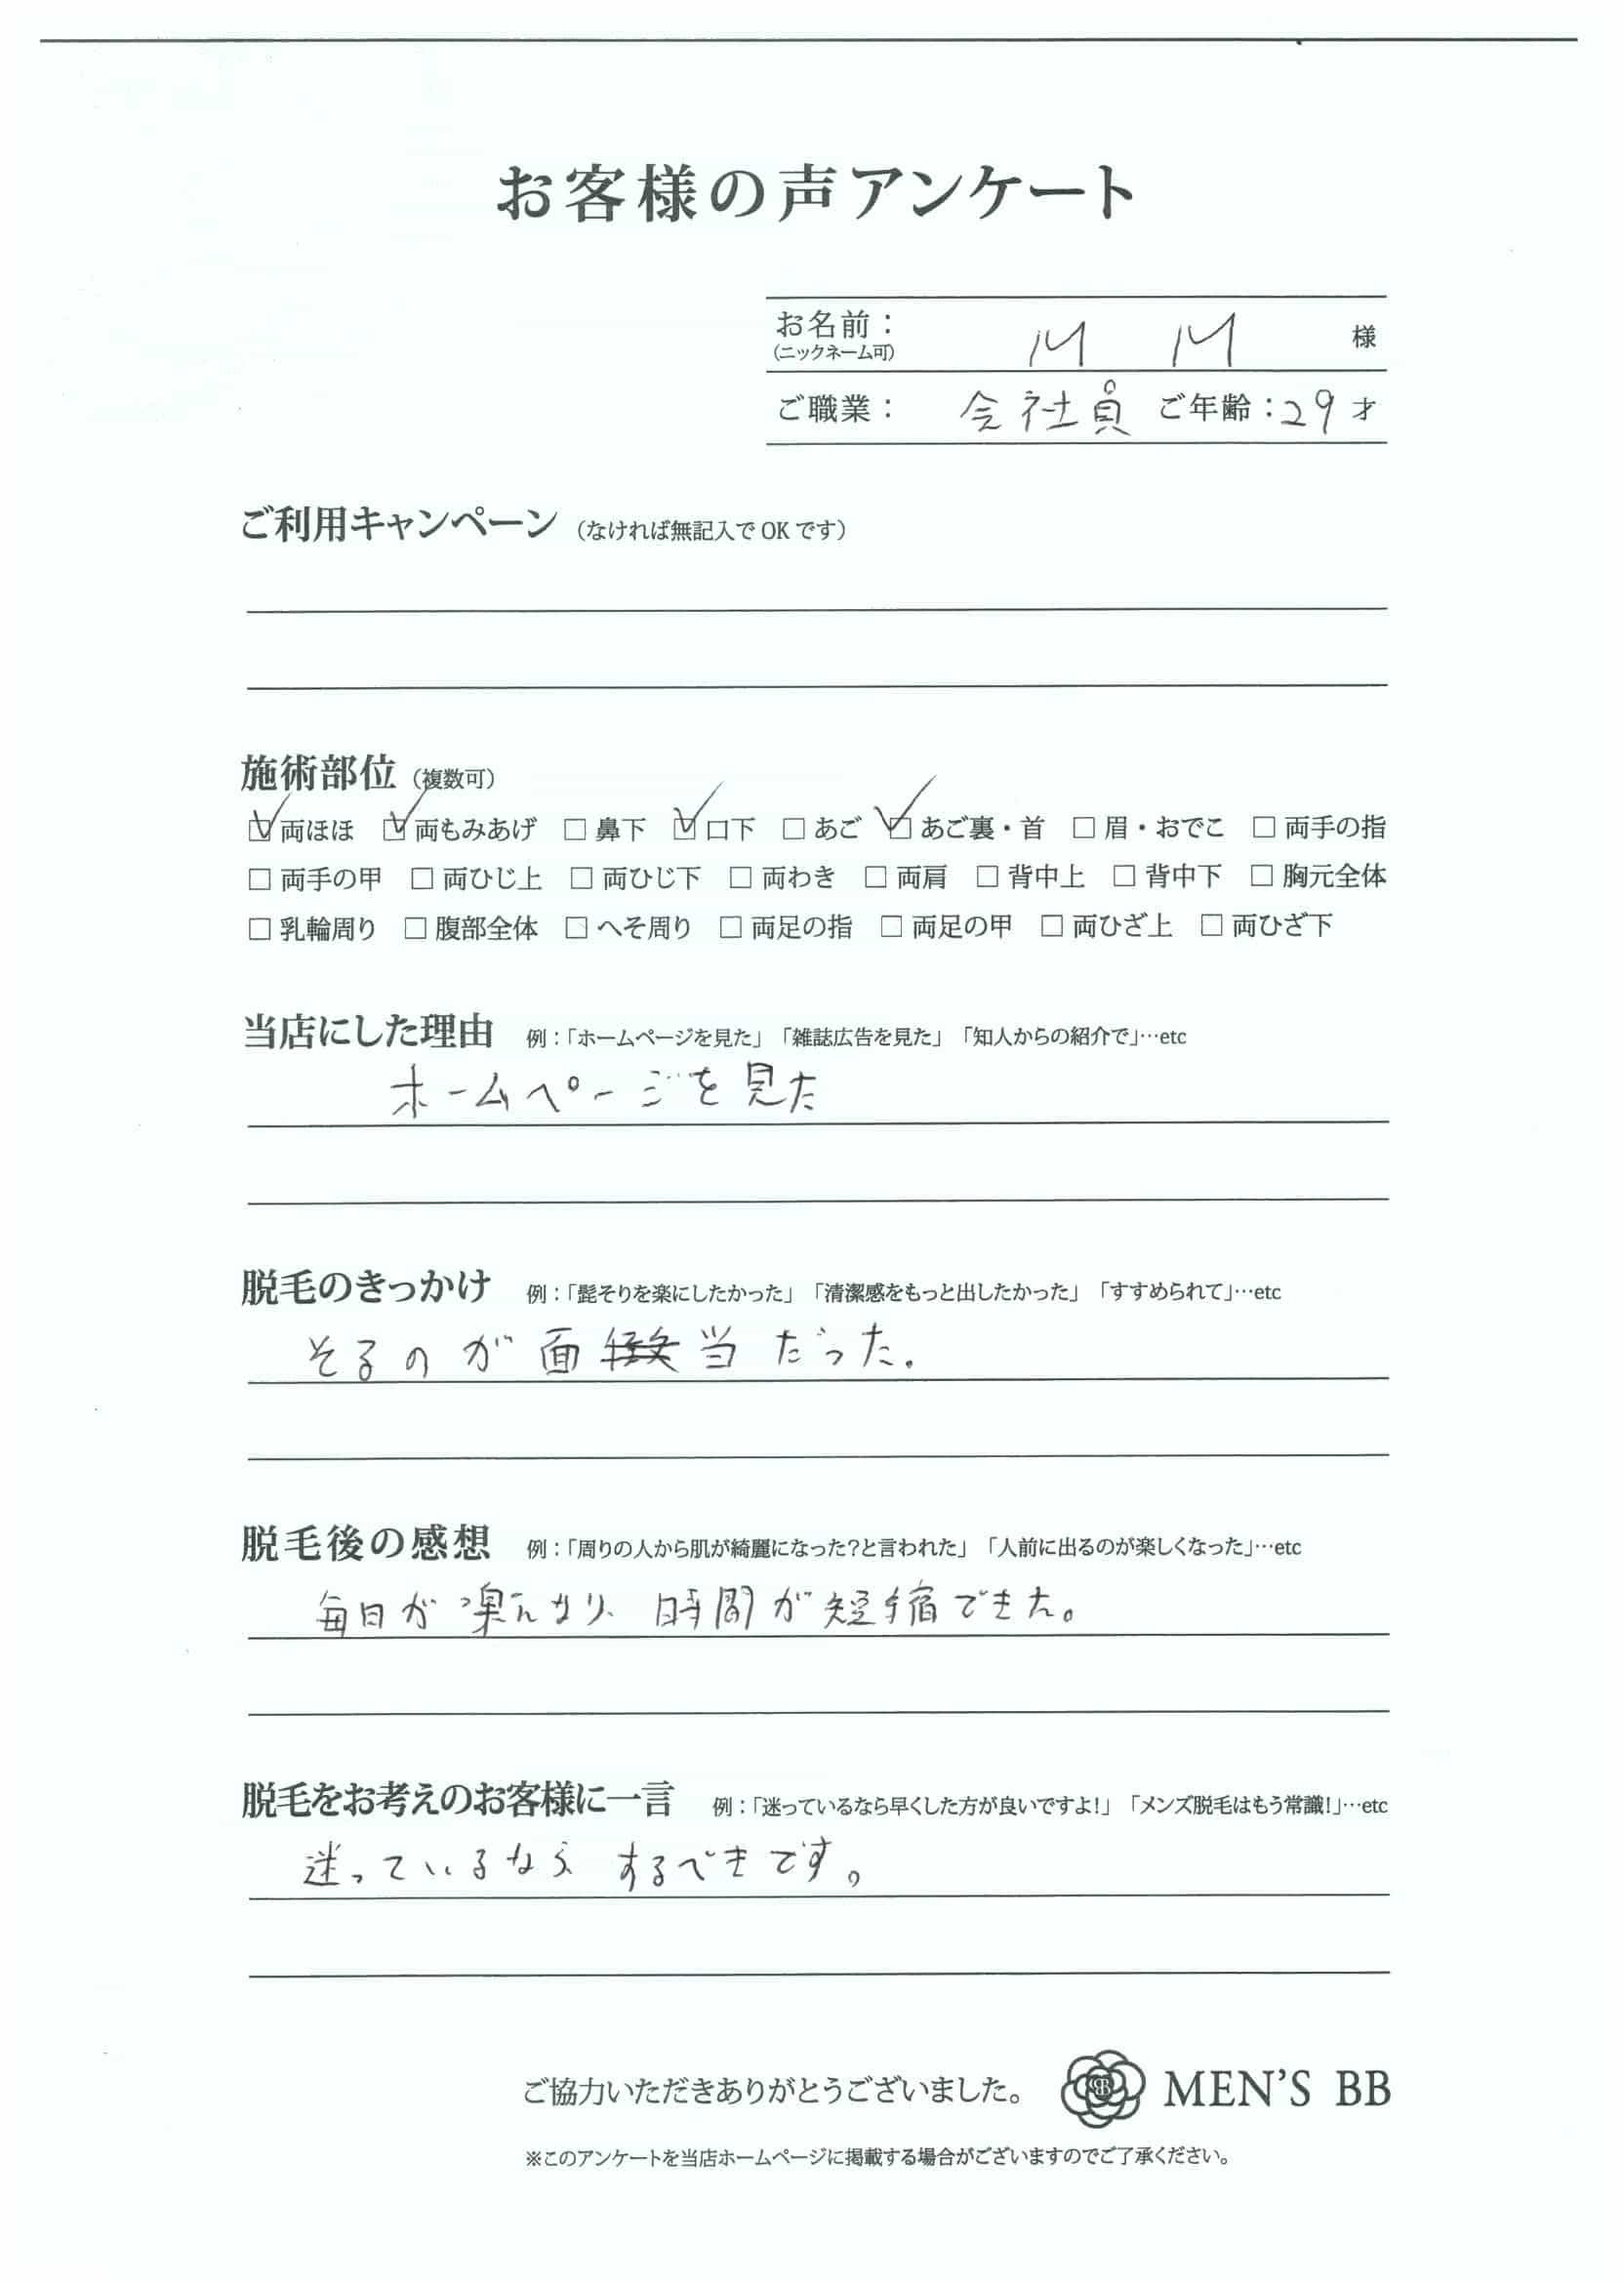 お客様の声アンケート
お名前： M M 様
(ニックネーム可)
ご職業： 会社員 ご年齢：29才
ご利用キャンペーン（なければ無記入でOKです）
施術部位（複数可）
☑両ほほ ☑両もみあげ □鼻下 ☑口下 □あご ☑あご裏・首 □眉・おでこ □両手の指
□両手の甲 □両ひじ上 □両ひじ下 □両わき □両肩 □背中上 □背中下 □胸元全体
□乳輪周り □腹部全体 □へそ周り □両足の指 □両足の甲 □両ひざ上 □両ひざ下
当店にした理由 例：「ホームページを見た」「雑誌広告を見た」「知人からの紹介で」…etc
ホームページを見た
脱毛のきっかけ 例：「髭そりを楽にしたかった」「清潔感をもっと出したかった」「すすめられて」…etc
そるのが面当だった.
脱毛後の感想 例：「周りの人から肌が綺麗になった？と言われた」「人前に出るのが楽しくなった」…etc
毎日が楽んなり、時間が短縮できた。
脱毛をお考えのお客様に一言 例：「迷っているなら早くした方が良いですよ！」「メンズ脱毛はもう常識！」…etc
迷っているなら するべきです。
ご協力いただきありがとうございました。 MEN'S BB
※このアンケートを当店ホームページに掲載する場合がございますのでご了承ください。